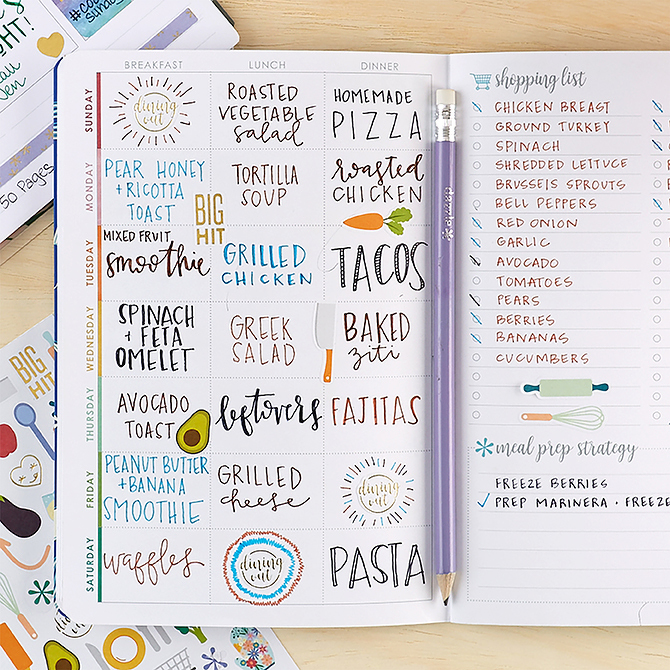 GHT!
50 Pages
BREAKFAST LUNCH DINNER
SUNDAY
dining out
ROASTED
VEGETABLE
salad
HOMEMADE
PIZZA
MONDAY
PEAR HONEY
+ RICOTTA
TOAST
BIG
HIT
TORTILLA
SOUP
roasted
CHICKEN
TUESDAY
MIXED FRUIT
smoothie
GRILLED
CHICKEN
TACOS
WEDNESDAY
SPINACH
+ FETA
OMELET
GREEK
SALAD
BAKED
ziti
THURSDAY
AVOCADO
TOAST
leftovers
FAJITAS
FRIDAY
PEANUT BUTTER
+ BANANA
SMOOTHIE
GRILLED
cheese
dining
out
SATURDAY
waffles
dining
out
PASTA
shopping list
CHICKEN BREAST
GROUND TURKEY
SPINACH
SHREDDED LETTUCE
BRUSSEIS SPROUTS
BELL PEPPERS
RED ONION
GARLIC
AVOCADO
TOMATOES
PEARS
BERRIES
BANANAS
CUCUMBERS
meal prep strategy
FREEZE BERRIES
PREP MARINERA • FREEZE
BIG
HIT